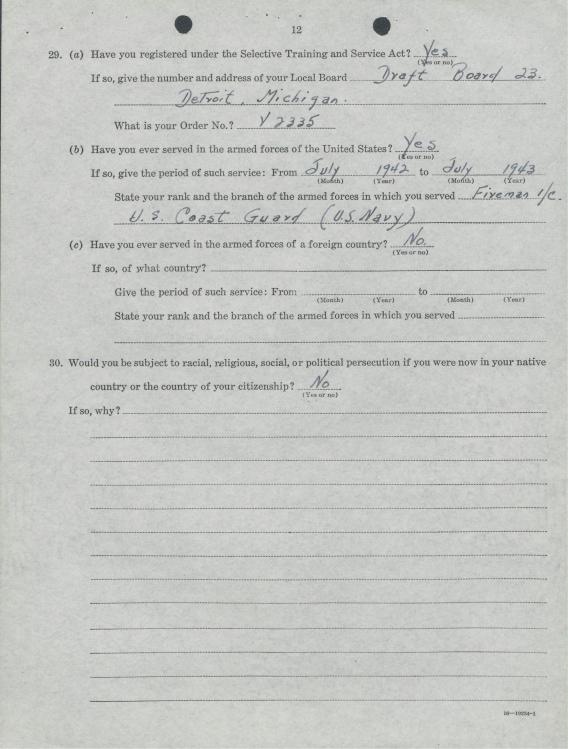 12
29. (a) Have you registered under the Selective Training and Service Act? Yes
(Yes or no)
If so, give the number and address of your Local Board Draft Board 23.
Detroit, Michigan.
What is your Order No.? V2335
(b) Have you ever served in the armed forces of the United States? Yes
(Yes or no)
If so, give the period of such service: From July 1942 to July 1943
(Month) (Year) (Month) (Year)
State your rank and the branch of the armed forces in which you served Fireman 1/c.
U. S. Coast Guard (U.S. Navy)
(c) Have you ever served in the armed forces of a foreign country? No.
(Yes or no)
If so, of what country?
Give the period of such service: From to
(Month) (Year) (Month) (Year)
State your rank and the branch of the armed forces in which you served
30. Would you be subject to racial, religious, social, or political persecution if you were now in your native
country or the country of your citizenship? No
(Yes or no)
If so, why?
16—19234-1